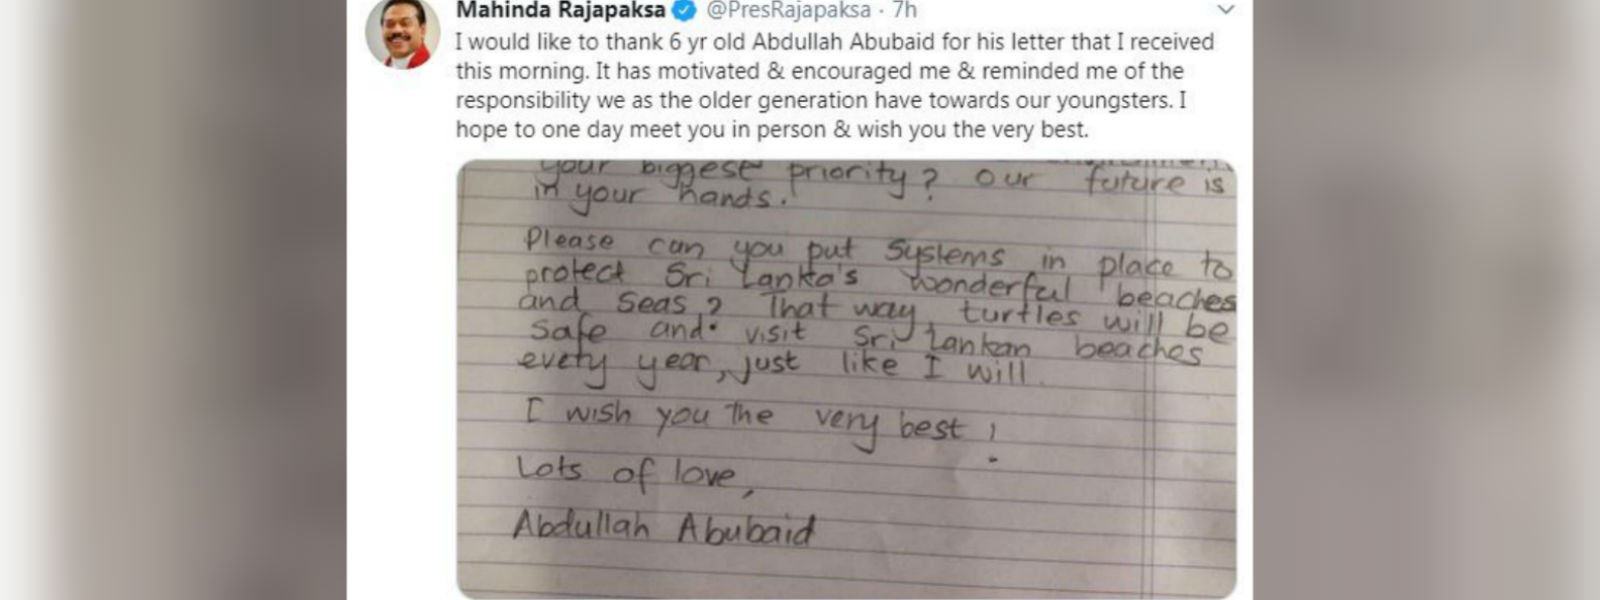 Mahinda Rajapaksa @PresRajapaksa · 7h
I would like to thank 6 yr old Abdullah Abubaid for his letter that I received
this morning. It has motivated & encouraged me & reminded me of the
responsibility we as the older generation have towards our youngsters. I
hope to one day meet you in person & wish you the very best.
your biggest priority? Our future is
in your hands.
Please can you put systems in place to
protect Sri Lanka's wonderful beaches
and seas? That way, turtles will be
safe and visit Sri Lankan beaches
every year, just like I will.
I wish you the very best!
Lots of love,
Abdullah Abubaid